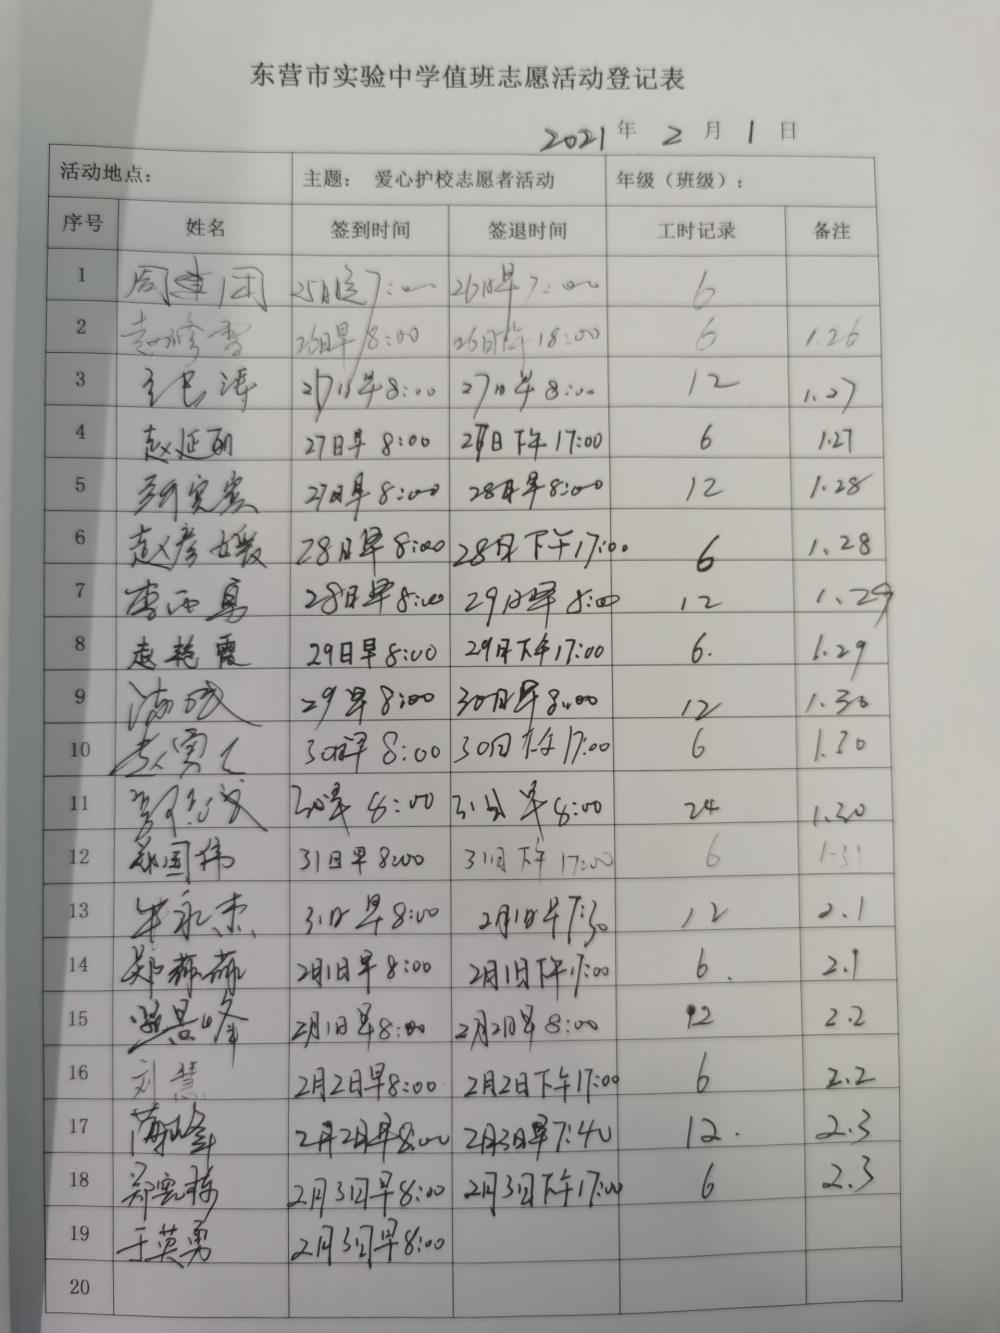 东营市实验中学值班志愿活动登记表
2021年 2月 1日
活动地点： 主题： 爱心护校志愿者活动 年级（班级）：
序号 姓名 签到时间 签退时间 工时记录 备注
1 周建团 25日晚7:00 26日早7:00 6
2 赵修雪 26日早8:00 26日下午18:00 6 1.26
3 27日早8:00 27日早8:00 12 1.27
4 赵延丽 27日早8:00 27日下午17:00 6 1.27
5 27日早8:00 28日早8:00 12 1.28
6 赵彦媛 28日早8:00 28日下午17:00 6 1.28
7 李西 28日早8:00 29日早8:00 12 1.29
8 赵艳霞 29日早8:00 29日下午17:00 6. 1.29
9 29早8:00 30日早8:00 12 1.30
10 30日早8:00 30日下午17:00 6 1.30
11 30早8:00 31日早8:00 24 1.30
12 国伟 31日早8:00 31日下午17:00 6 1.31
13 牛永杰 31日早8:00 2月1日早7:30 12 2.1
14 郑 2月1日早8:00 2月1日下午17:00 6. 2.1
15 景峰 2月1日早8:00 2月2日早8:00 12 2.2
16 刘慧 2月2日早8:00 2月2日下午17:00 6 2.2
17 峰 2月2日早8:00 2月3日早7:40 12. 2.3
18 郑 2月3日早8:00 2月3日下午17:00 6 2.3
19 于英勇 2月3日早8:00
20